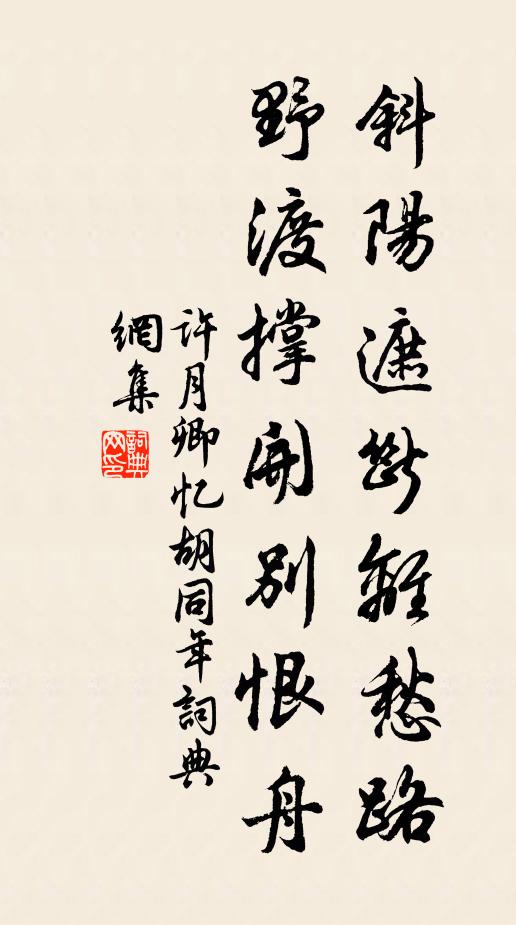 斜陽遮斷離愁路
野渡撐開別恨舟
許月卿忆胡同年詞典
網集
詞典網印